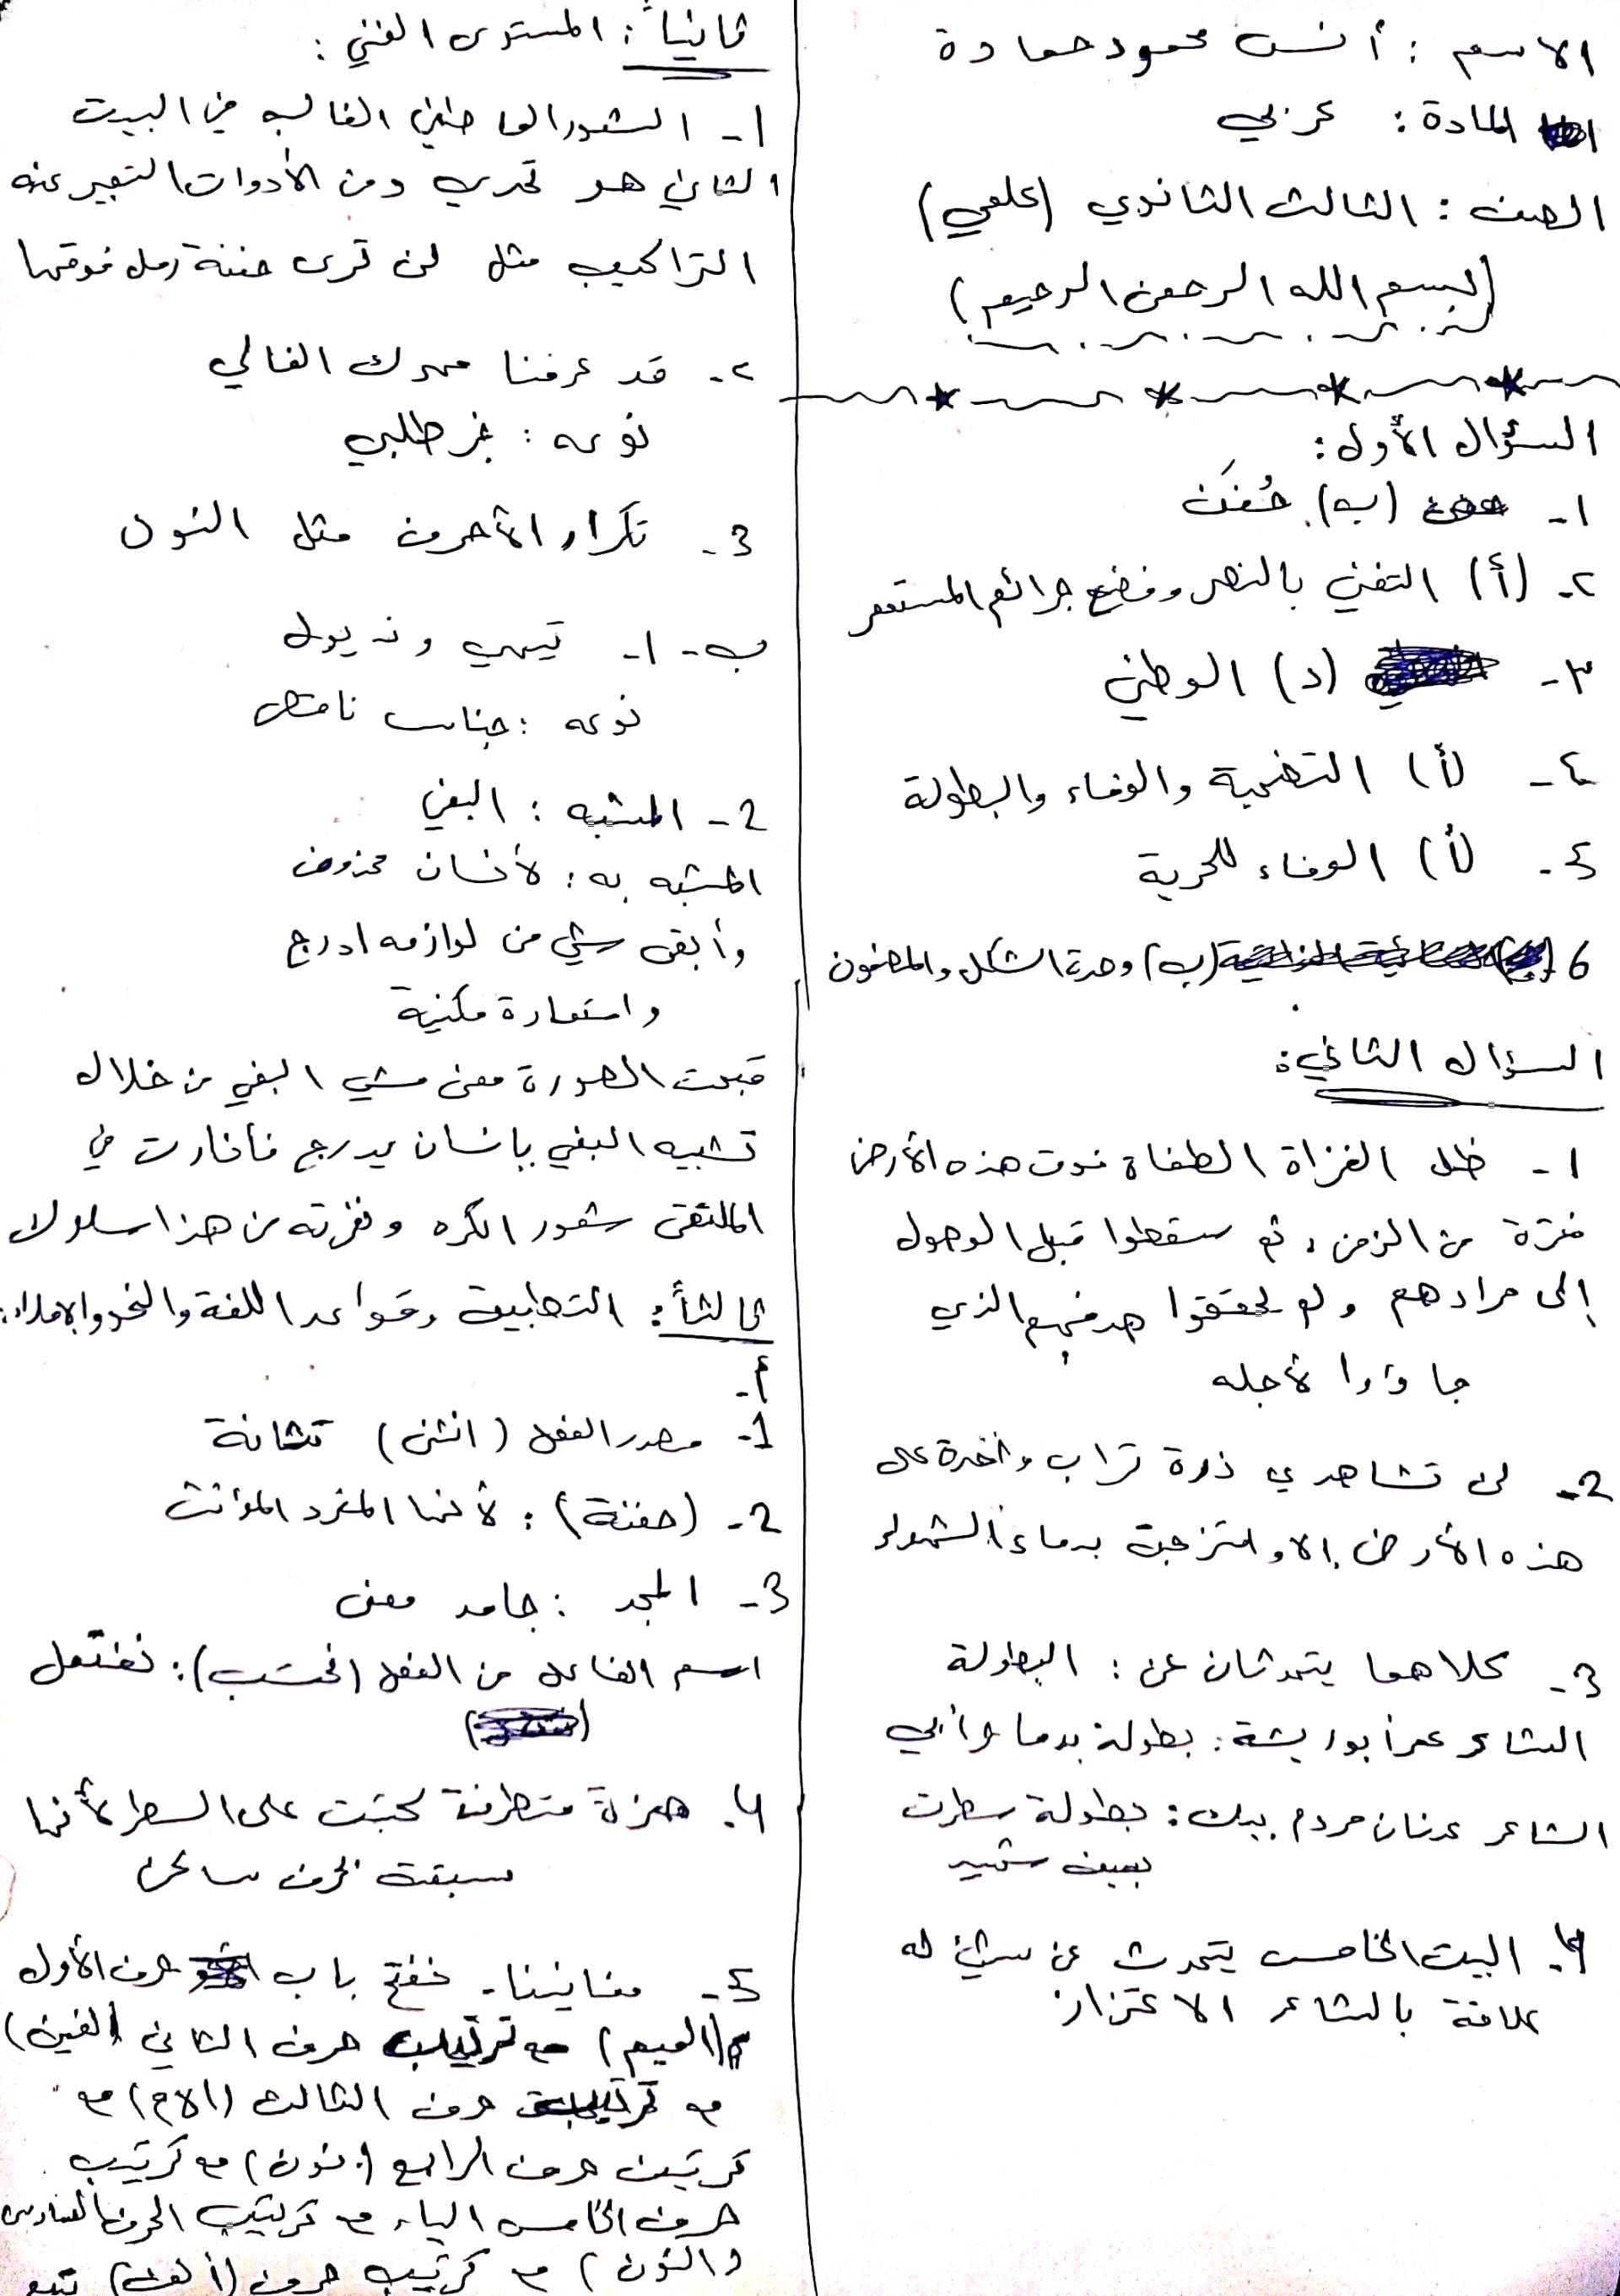 الاسم : أنس محمود حمادة
المادة : عربي
الصف : الثالث الثانوي (علمي)
(بسم الله الرحمن الرحيم)
السؤال الأول :
١- (ب). حُفَن
٢- (أ) التغني بالنصر وفضح جرائم المستعمر
٣- (د) الوطني
٤- (أ) التضحية والوفاء والبطولة
5- (أ) الوفاء للحرية
6- (ب) وحدة الشكل والمضمون
السؤال الثاني :
١- ظل الغزاة الطغاة فوق هذه الأرض
فترة من الزمن، ثم سقطوا قبل الوصول
إلى مرادهم ولم يحققوا هدفهم الذي
جاؤوا لأجله
2- لن تشاهدي ذرة تراب واخدة على
هذه الأرض إلا و امتزجت بدماء الشهداء
3- كلاهما يتحدثان عن : البطولة
الشاعر عمر أبو ريشة : بطولة بدماء أبي
الشاعر عدنان مردم بيك : بطولة سطرت
بسيف شهيد
4- البيت الخامس يتحدث عن شيئ له
علاقة بالشاعر الاعتزاز
ثانياً : المستوى الفني :
١- الشعور العاطفي الغالب في البيت
الثاني هو تحدي ومن الأدوات التعبير عنه
التراكيب مثل لن تري حفنة رمل فوقها
٢- قد عرفنا مهرك الغالي
نوعه : غير طلبي
3- تكرار الأحرف مثل النون
ب- ١- تيهي و ذيول
نوعه : جناس ناقص
2- المشبه : البغي
المشبه به : لأنسان محذوف
وأبقى شي من لوازمه ادرج
واستعارة مكنية
قبحت الصورة معنى مشي البغي من خلال
تشبيه البغي بإنسان يدرج فأثارت في
الملتقى شعور الكره ونفرته من هذا سلوك
ثالثاً : التطبيق وقواعد اللغة والنحو والإملاء :
أ-
1- مصدر الفعل (انثنى)
2- (حفنة) : لأنها المفرد المؤنث
3- المجد : جامد معنى
اسم الفاعل من الفعل
4- همزة متطرفة كتبت على السطر لأنها
سبقت بحرف ساكن
5- مغانينا- نفتح باب حرف الأول
(الميم) مع ترتيب حرف الثاني (الغين)
مع ترتيب حرف الثالث (الام) مع
ترتيب حرف الرابع (نون) مع ترتيب
حرف الخامس الياء مع ترتيب الحرف السادس
(النون) مع ترتيب حرف (ألف)